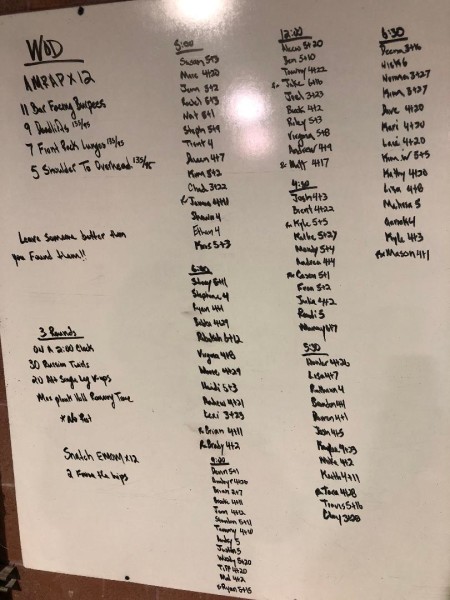 WOD
AMRAP x 12
11 Bar Facing Burpees
9 Deadlifts 135/95
7 Front Rack Lunges 135/95
5 Shoulder To Overhead 135/95
Leave someone better than
you Found them!!
3 Rounds
ON A 2:00 Clock
30 Russian Twists
20 Alt Single Leg V-ups
Max plank Hold Remaining Time
* No Rest
Snatch EMOM x 12
2 From the hips
5:00
Susan 5+3
Marc 4+20
Jenn 5+2
Rachel 5+3
Nat 5+1
Steph 5+9
Trent 4
Shawn 4+7
Kim 5+2
Chad 3+22
Rx James 4+11
Shawna 4
Ethan 4
Kris 5+3
6:00
Stacy 5+11
Stephanie 4
Ryan 4+1
Bobbi 4+29
Rebekah 6+12
Virginia 4+8
4+29
Heidi 5+3
Andrew 4+21
Lexi 3+23
Rx Brian 4+11
Rx Brady 4+2
9:00
Dann 5+1
4+20
Brian 2+7
Brook 4+11
Jann 4+12
5+11
Tammy 4+10
5
Justin 5
Wendy 5+20
Tiff 4+20
Mel 4+2
Ryan 5+15
12:00
5+20
Ben 5+10
Tommy 4+22
Rx Jake 6+16
Joel 3+23
Beck 4+2
Riley 5+3
Virginia 5+8
Andrew 4+9
Rx Matt 4+17
4:30
Josh 4+3
Brent 4+22
Rx Kyle 5+5
Kathe 5+27
Mandy 5+4
Andrea 4+4
Rx Cason 5+1
Fran 5+2
Julie 4+2
Randi 5
4+7
5:30
4+26
Lesa 4+7
4
Brandon 4+4
Aaron 4+1
Josh 4+5
Kaylee 4+23
Mike 4+2
Keith 4+11
Rx Tara 4+28
Travis 5+16
Clay 3+28
6:30
Deena 3+16
Vick 6
Norman 3+27
Kim 3+27
Dave 4+20
Mari 4+20
Lori 4+20
Kim W 5+5
Kathy 4+20
Lisa 4+8
Melissa 5
4
Kyle 4+3
Rx Mason 4+1